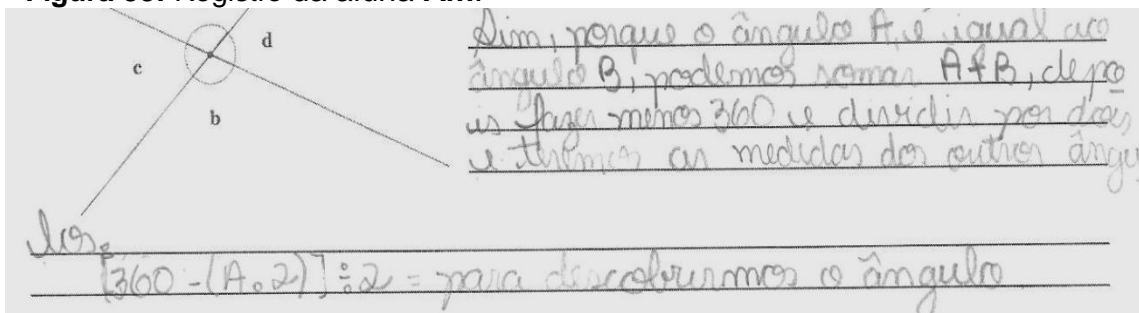 d
c
b
Sim, porque o ângulo A, é igual ao
ângulo B, podemos somar A+B, depo
is fazer menos 360 e dividir por dois
e teremos as medidas dos outros ângu
los.
[360 - (A.2)] ÷ 2 = para descobrirmos o ângulo